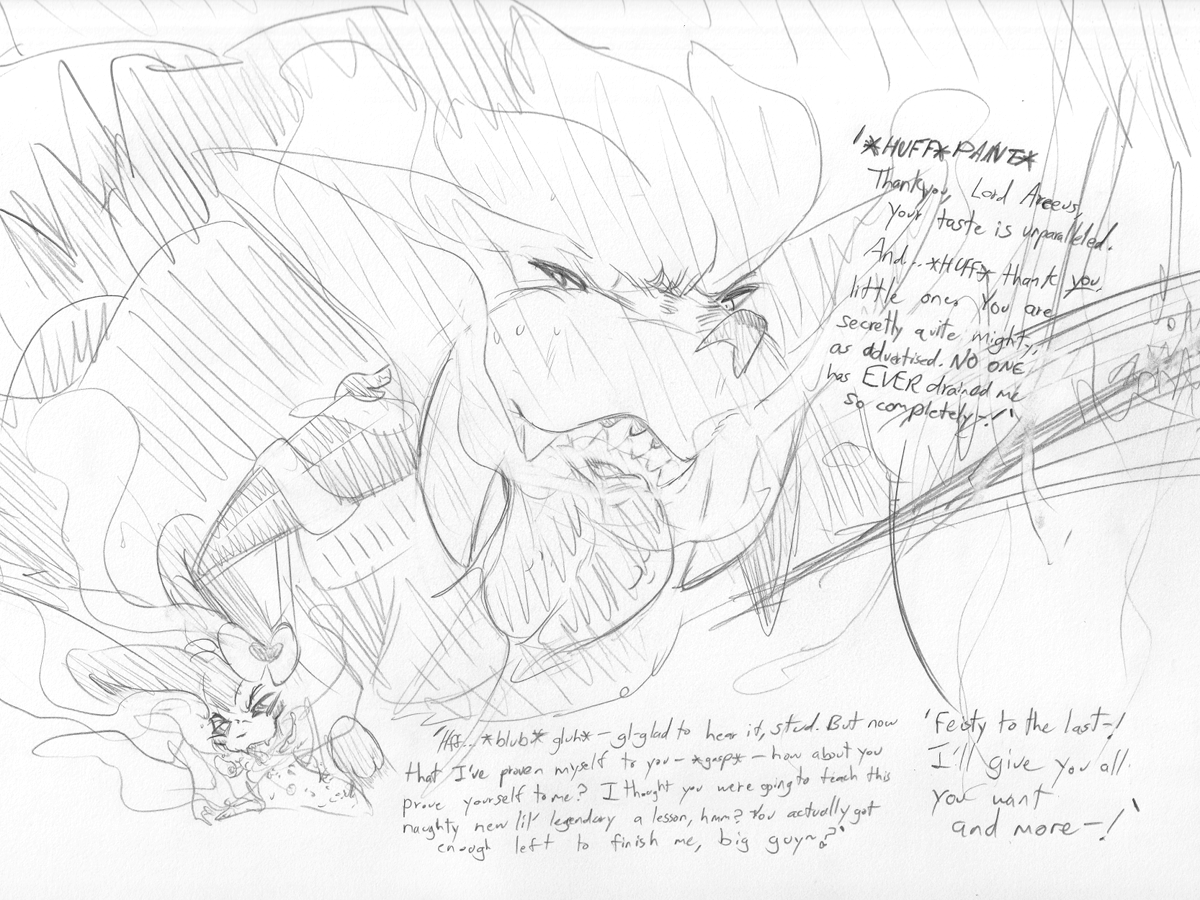 '*HUFF*PANT*
Thankyou, Lord Areeus,
Your taste is unparalleled.
And... *HUFF* thank you,
little one. You are
secretly quite mighty,
as advertised. NO ONE
has EVER drained me
so completely-!'
*blub* gluh* – gl-glad to hear it, stud. But now
that I've proven myself to you – *gasp* – how about you
prove yourself to me? I thought you were going to teach this
naughty new lil' legendary a lesson, hmm? You actually got
enough left to finish me, big guy~?'
'Feisty to the last-!
I'll give you all
you want
and more-!'